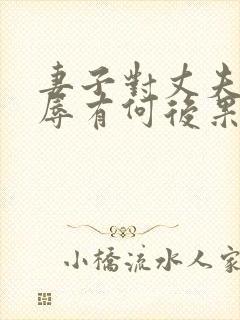 妻子對丈夫
辱有何後果
小橋流水人家